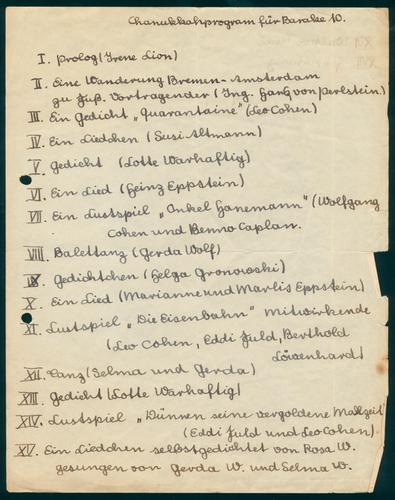 Chanukkahprogram für Barake 10.
I. Prolog (Irene Lion)
II. Eine Wanderung Bremen-Amsterdam
zu Fuß. Vortragender (Ing. Hans von Perlstein)
III. Ein Gedicht „Quarantaine" (Leo Cohen)
IV. Ein Liedchen (Susi Altmann)
V. Gedicht (Lotte Warhaftig)
VI. Ein Lied (Heinz Eppstein)
VII. Ein Lustspiel „Onkel Hanemann" (Wolfgang
Cohen und Benno Caplan.
VIII. Balettanz (Gerda Wolf)
IX. Gedichtchen (Helga Gronowski)
X. Ein Lied (Marianne und Marlis Eppstein)
XI. Lustspiel „Die Eisenbahn" Mitwirkende
(Leo Cohen, Eddi Juld, Berthold
Löwenhardt)
XII. Tanz (Selma und Gerda)
XIII. Gedicht (Lotte Warhaftig)
XIV. Lustspiel „Dünnen seine vergoldene Mahlzeit"
(Eddi Juld und Leo Cohen).
XV. Ein Liedchen selbstgedichtet von Rosa W.
gesungen von Gerda W. und Selma W.